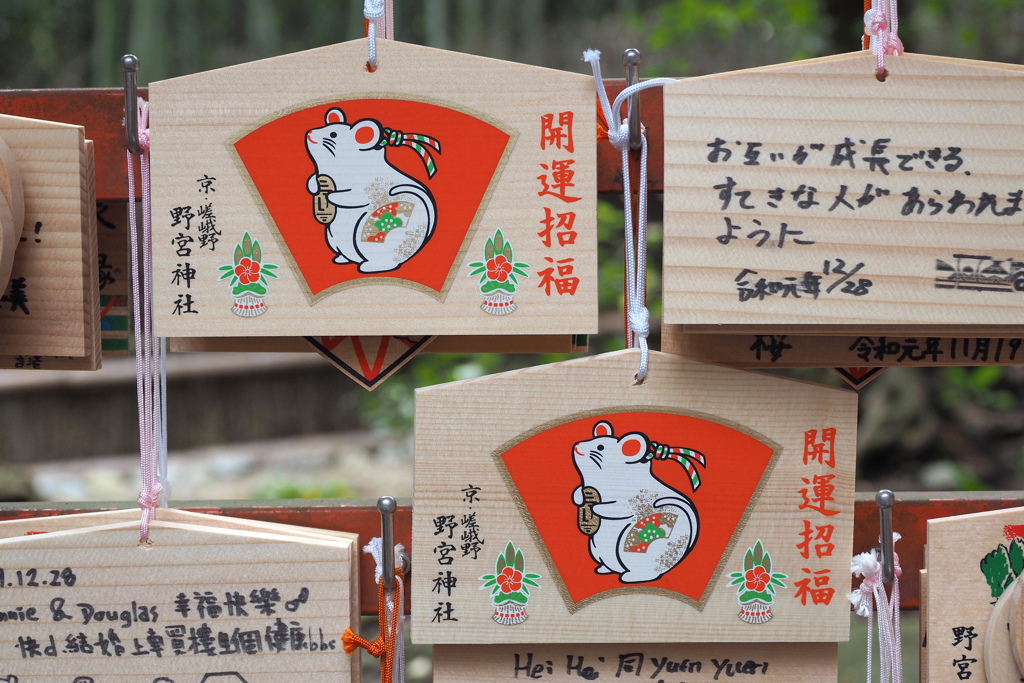 開運招福
京・嵯峨野
野宮神社
お互いが成長できる、
すてきな人があらわれま
ように
令和元年12/28
桜 令和元年11月19
開運招福
京・嵯峨野
野宮神社
.12.28
nnie & Douglas 幸福快樂
Hei Hei 同 Yuen Yuen
野宮